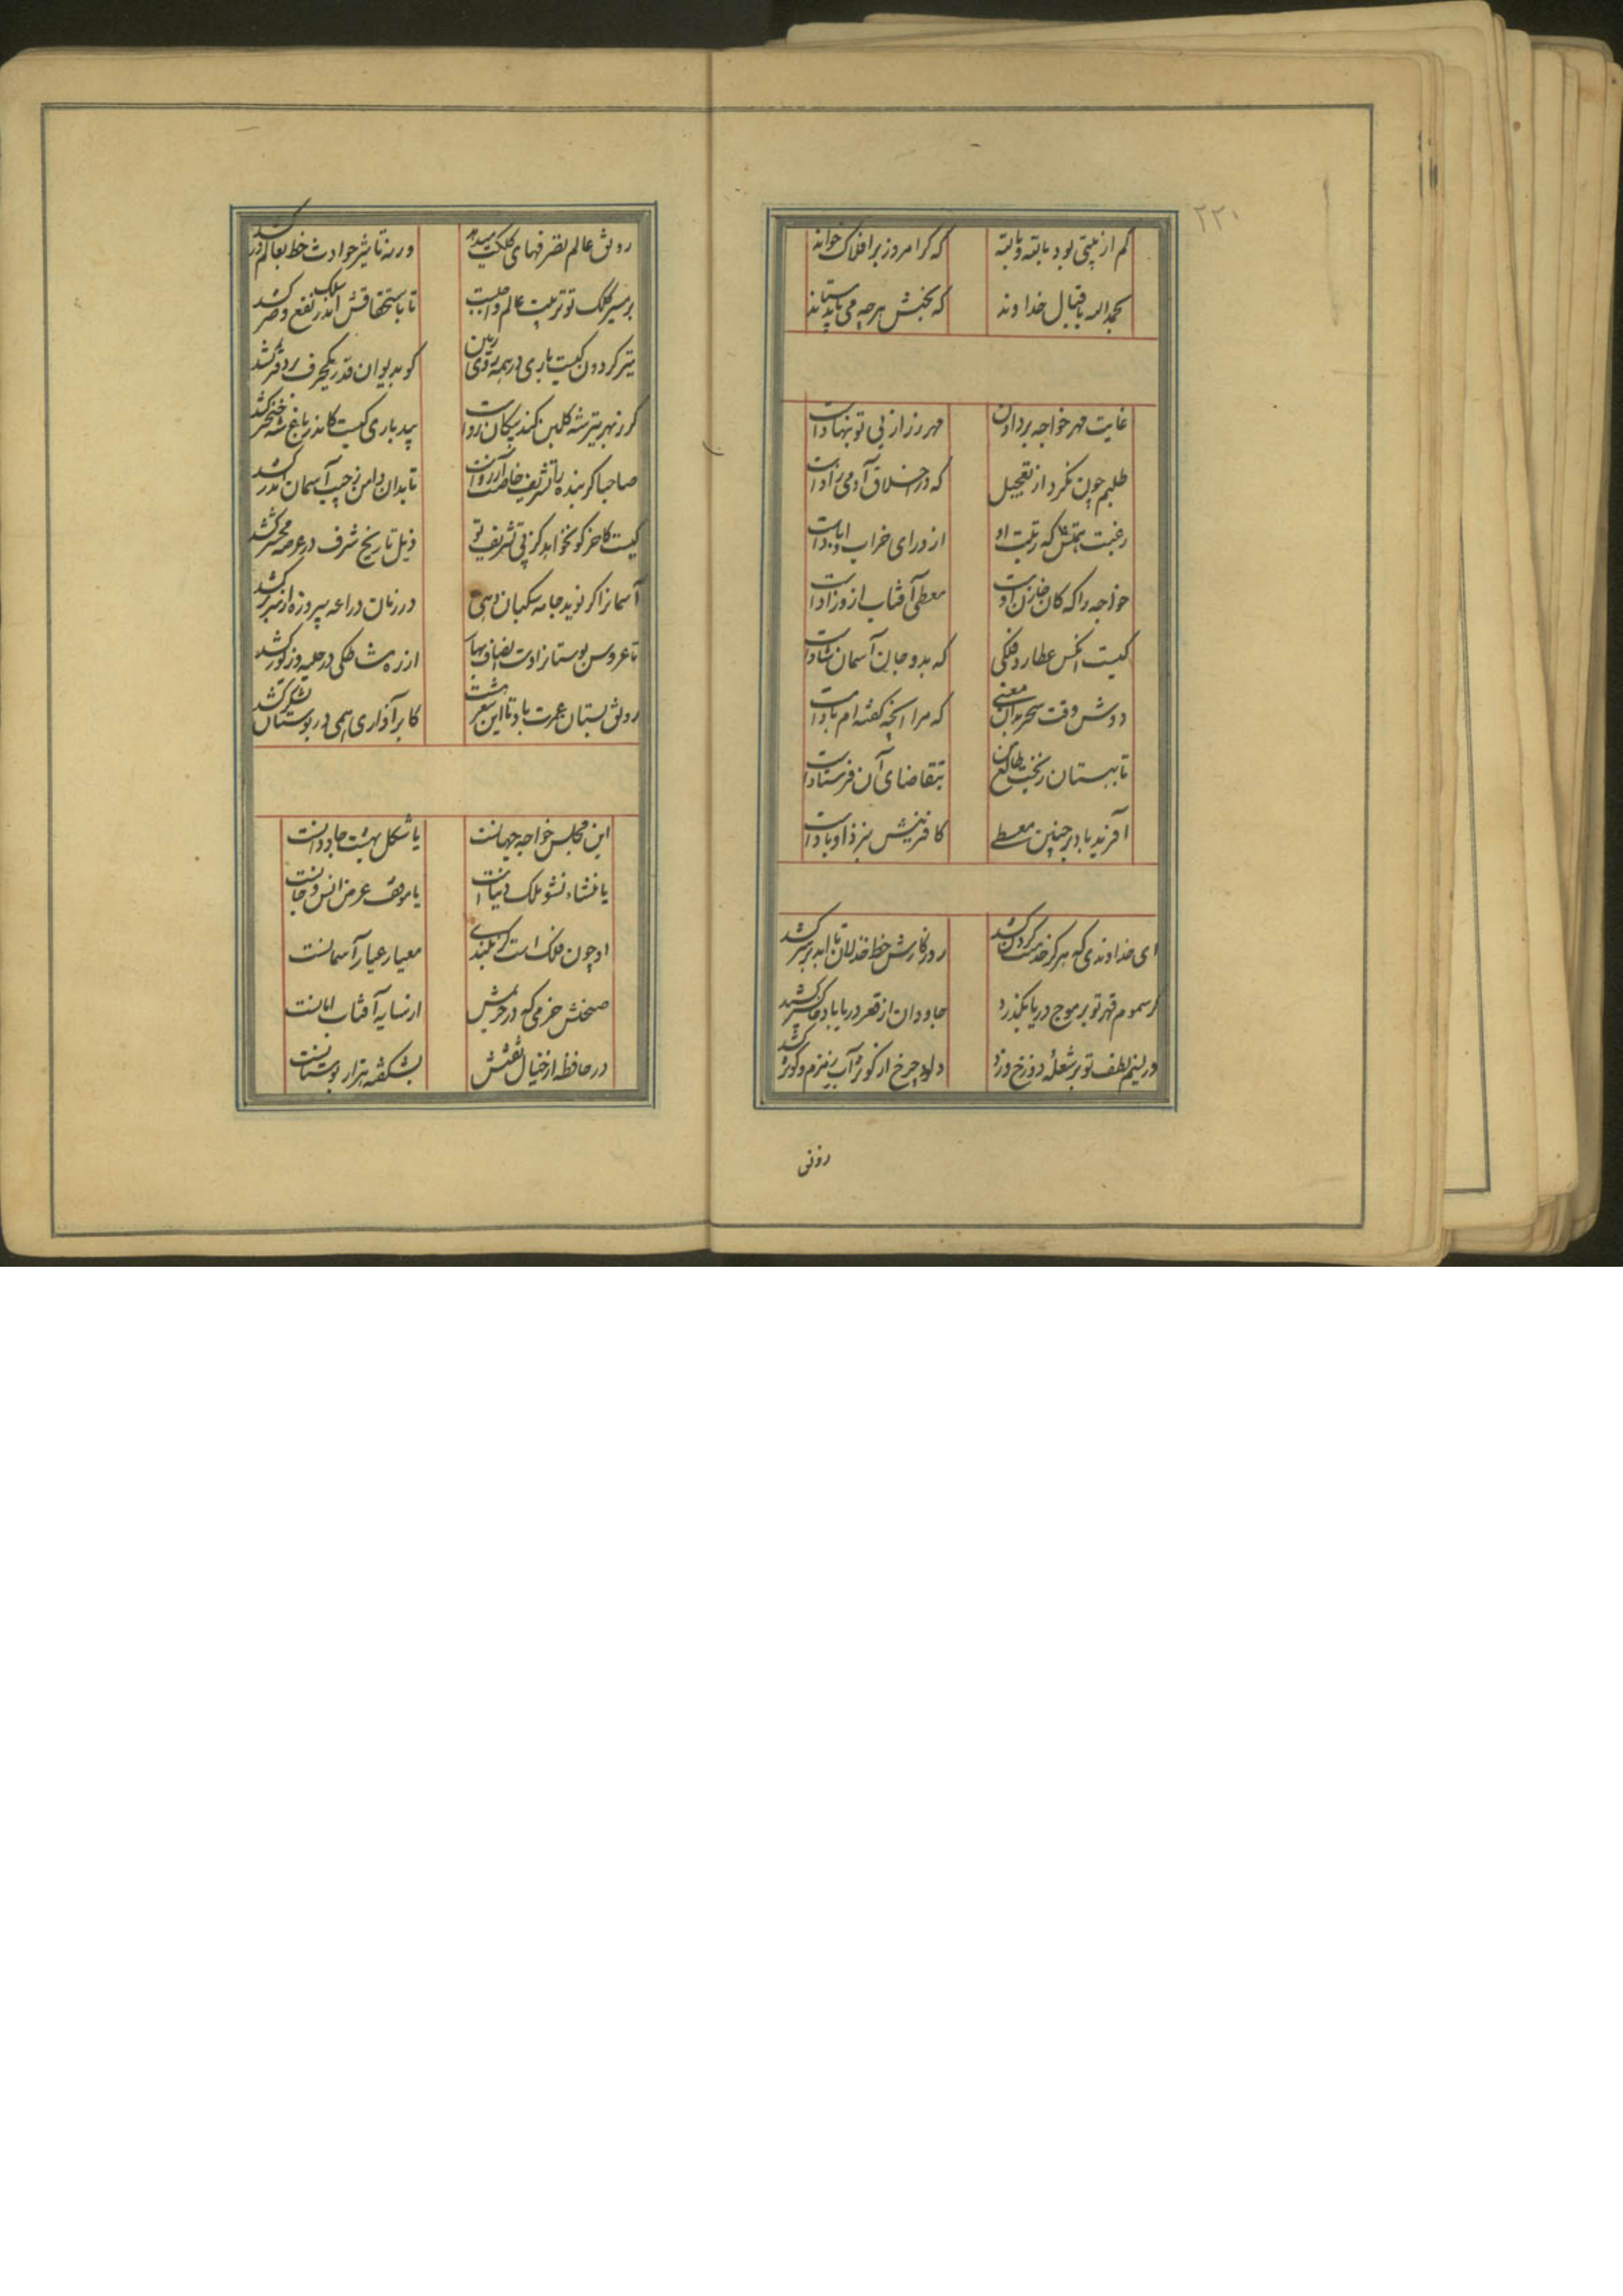 ۲۲۰
کم از بیتی بود بابته و بابته که کر امروز بر افلاک خواند
بحمدالله باقبال خداوند که بخشش هرچه می باید ستاند
غایت مهر خواجه بردادن مهر رز از پی تو بنهادست
طلبم چون نکرد از تعجیل که در اخلاق آدمی زادست
رغبت همتش که رتبت او از ورای خراب و آبادست
خواجه را که کان خازن اوست معطی آفتاب ازو زادست
کیست انکس عطارد فلکی که بدو جان آسمان شادست
دوش وقت سحر بدان معنی که مرا آنچه گفته ام یادست
تا ببستان ز بخت طالع من بتقاضای آن فرستادست
آفرین باد بر چنین معطی کافرینش بنزد او بادست
ای خداوندی که هر کز خدمتت گردن کشد روزگارش خط خذلان تا ابد بر سر کشد
گر سموم قهر تو بر موج دریا بگذرد جاودان از قعر دریا باد خاکستر کشد
ور نسیم لطف تو بر شعله دوزخ وزد دلو چرخ از کوثر آب زمزم و کوثر کشد
رونق
رونق عالم تصرفهای کلکت میدهد ورنه تاثیر حوادث خط بعالم در کشد
بر مسیر کلک تو ترتیب عالم واجبست تا باستحقاق سلک اندر نفع و ضر کشد
تیر گردون کیست باری در همه روی زمین کو بدیوان قدر یکحرف در دفتر کشد
گر ز بهر تیر شه گلبن نکند پیکان رواست بید باری کیست کاندر باغ شه خنجر کشد
صاحبا گر بنده را تشریف خاصت آرزوست تا بدان دامن ز جیب آسمان اندر کشد
کیست کاخر کو نخواهد کز پی تشریف تو ذیل تاریخ شرف در عرصه محشر کشد
آسمانرا گر نوید جامه سکبان دهی در زمان دراعه پیروزه از سر بر کشد
تا عروس بوستانرا دست انصاف بهار از ره مشاطکی در حلیه و زیور کشد
رونق بستان عمرت باد تا این شعر هست کابر آذاری همی در بوستان لشکر کشد
این مجلس خواجه جهانست یا شکل بهشت جاودانست
یا منشاء نشو ملک دنیاست یا موقف عرض انس و جانست
او چون فلک است کز بلندی معیار عیار آسمانست
صحنش حرمی که در حریمش از سایه آفتاب امانست
در حافظه از خیال نقشش بشکفته هزار بوستانست